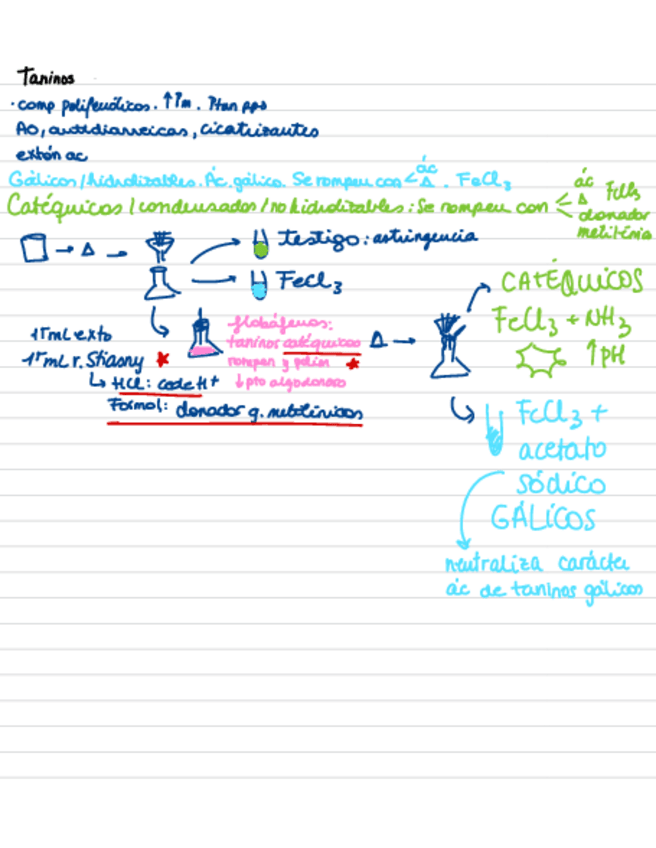 Taninos
· comp polifenólicos. ↑Pm. Ptan pps
AO, antidiarreicas, cicatrizantes
extón ac
Gálicos / hidrolizables. Ác. gálico. Se rompen con < ác Δ . FeCl3
Catéquicos / condensados / no hidrolizables: Se rompen con < ác Δ donador metilénico FeCl3
→ Δ →
testigo: astringencia
FeCl3
flobáfenos:
taninos catéquicos
rompen y polim
↓ pto algodonoso
15 mL exto
15 mL r. Stiasny *
↳ HCl: cede H+
Formol: donador g. metilénicos
* Δ →
CATÉQUICOS
FeCl3 + NH3
↑pH
FeCl3 +
acetato
sódico
GÁLICOS
neutraliza carácter
ác de taninos gálicos